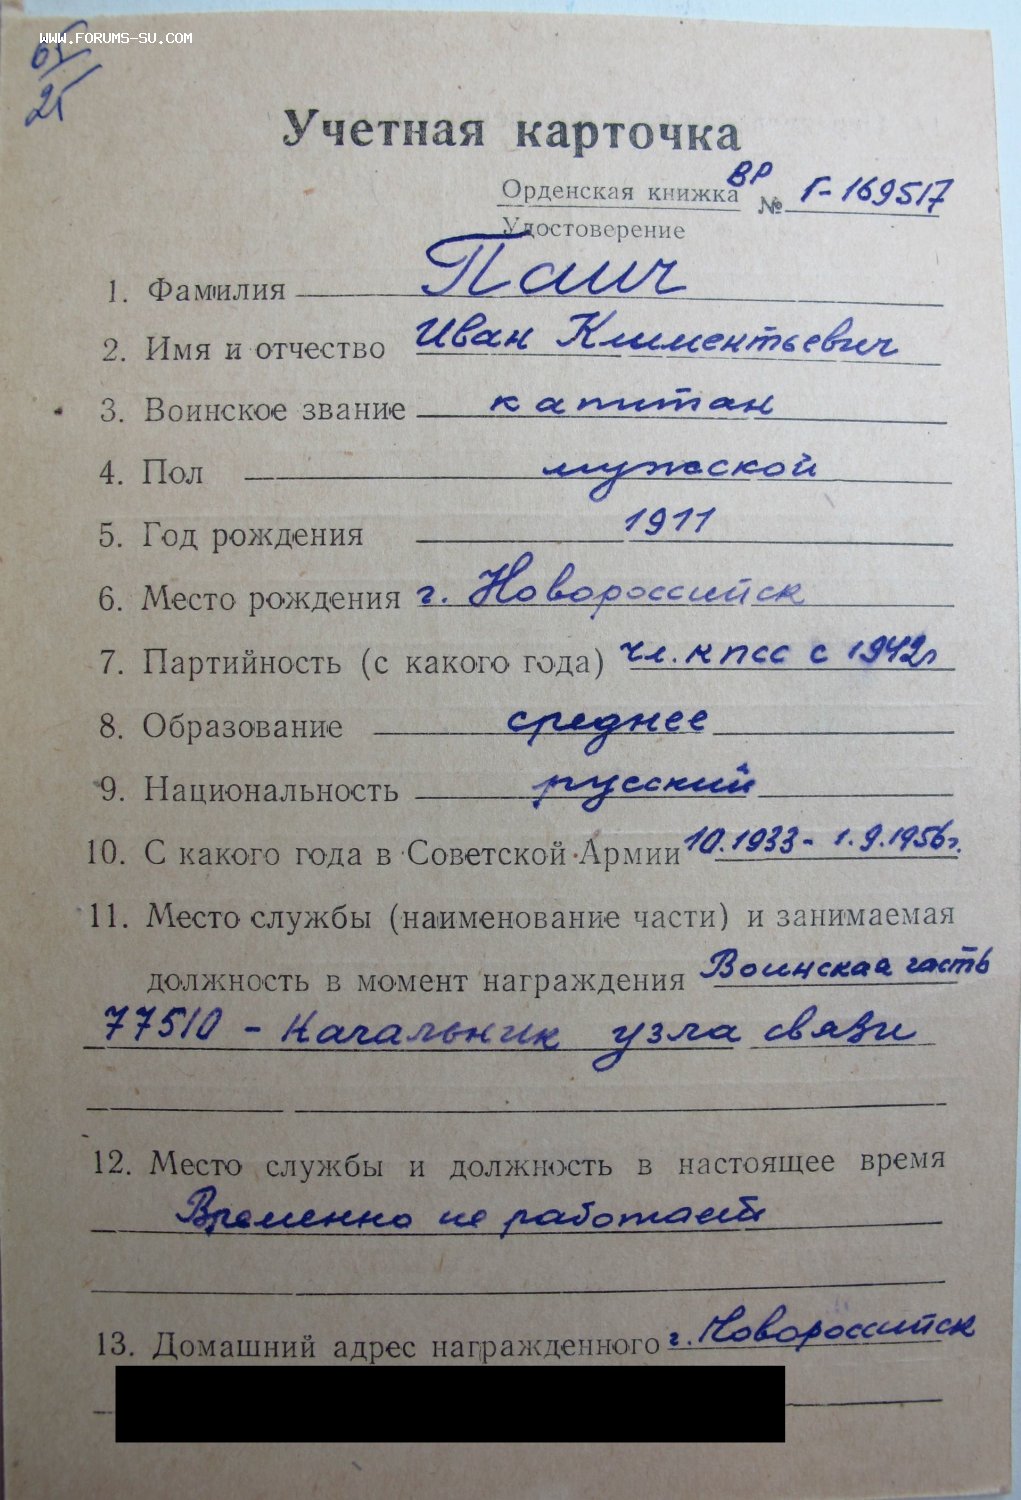 WWW.FORUMS-SU.COM
65
25
Учетная карточка
Орденская книжка ВР № Г-169517
Удостоверение
1. Фамилия Паич
2. Имя и отчество Иван Климентьевич
3. Воинское звание капитан
4. Пол мужской
5. Год рождения 1911
6. Место рождения г. Новороссийск
7. Партийность (с какого года) чл. КПСС с 1942г
8. Образование среднее
9. Национальность русский
10. С какого года в Советской Армии 10.1933 - 1.9.1956г.
11. Место службы (наименование части) и занимаемая
должность в момент награждения Воинская часть
77510 - Начальник узла связи
12. Место службы и должность в настоящее время
Временно не работает
13. Домашний адрес награжденного г. Новороссийск